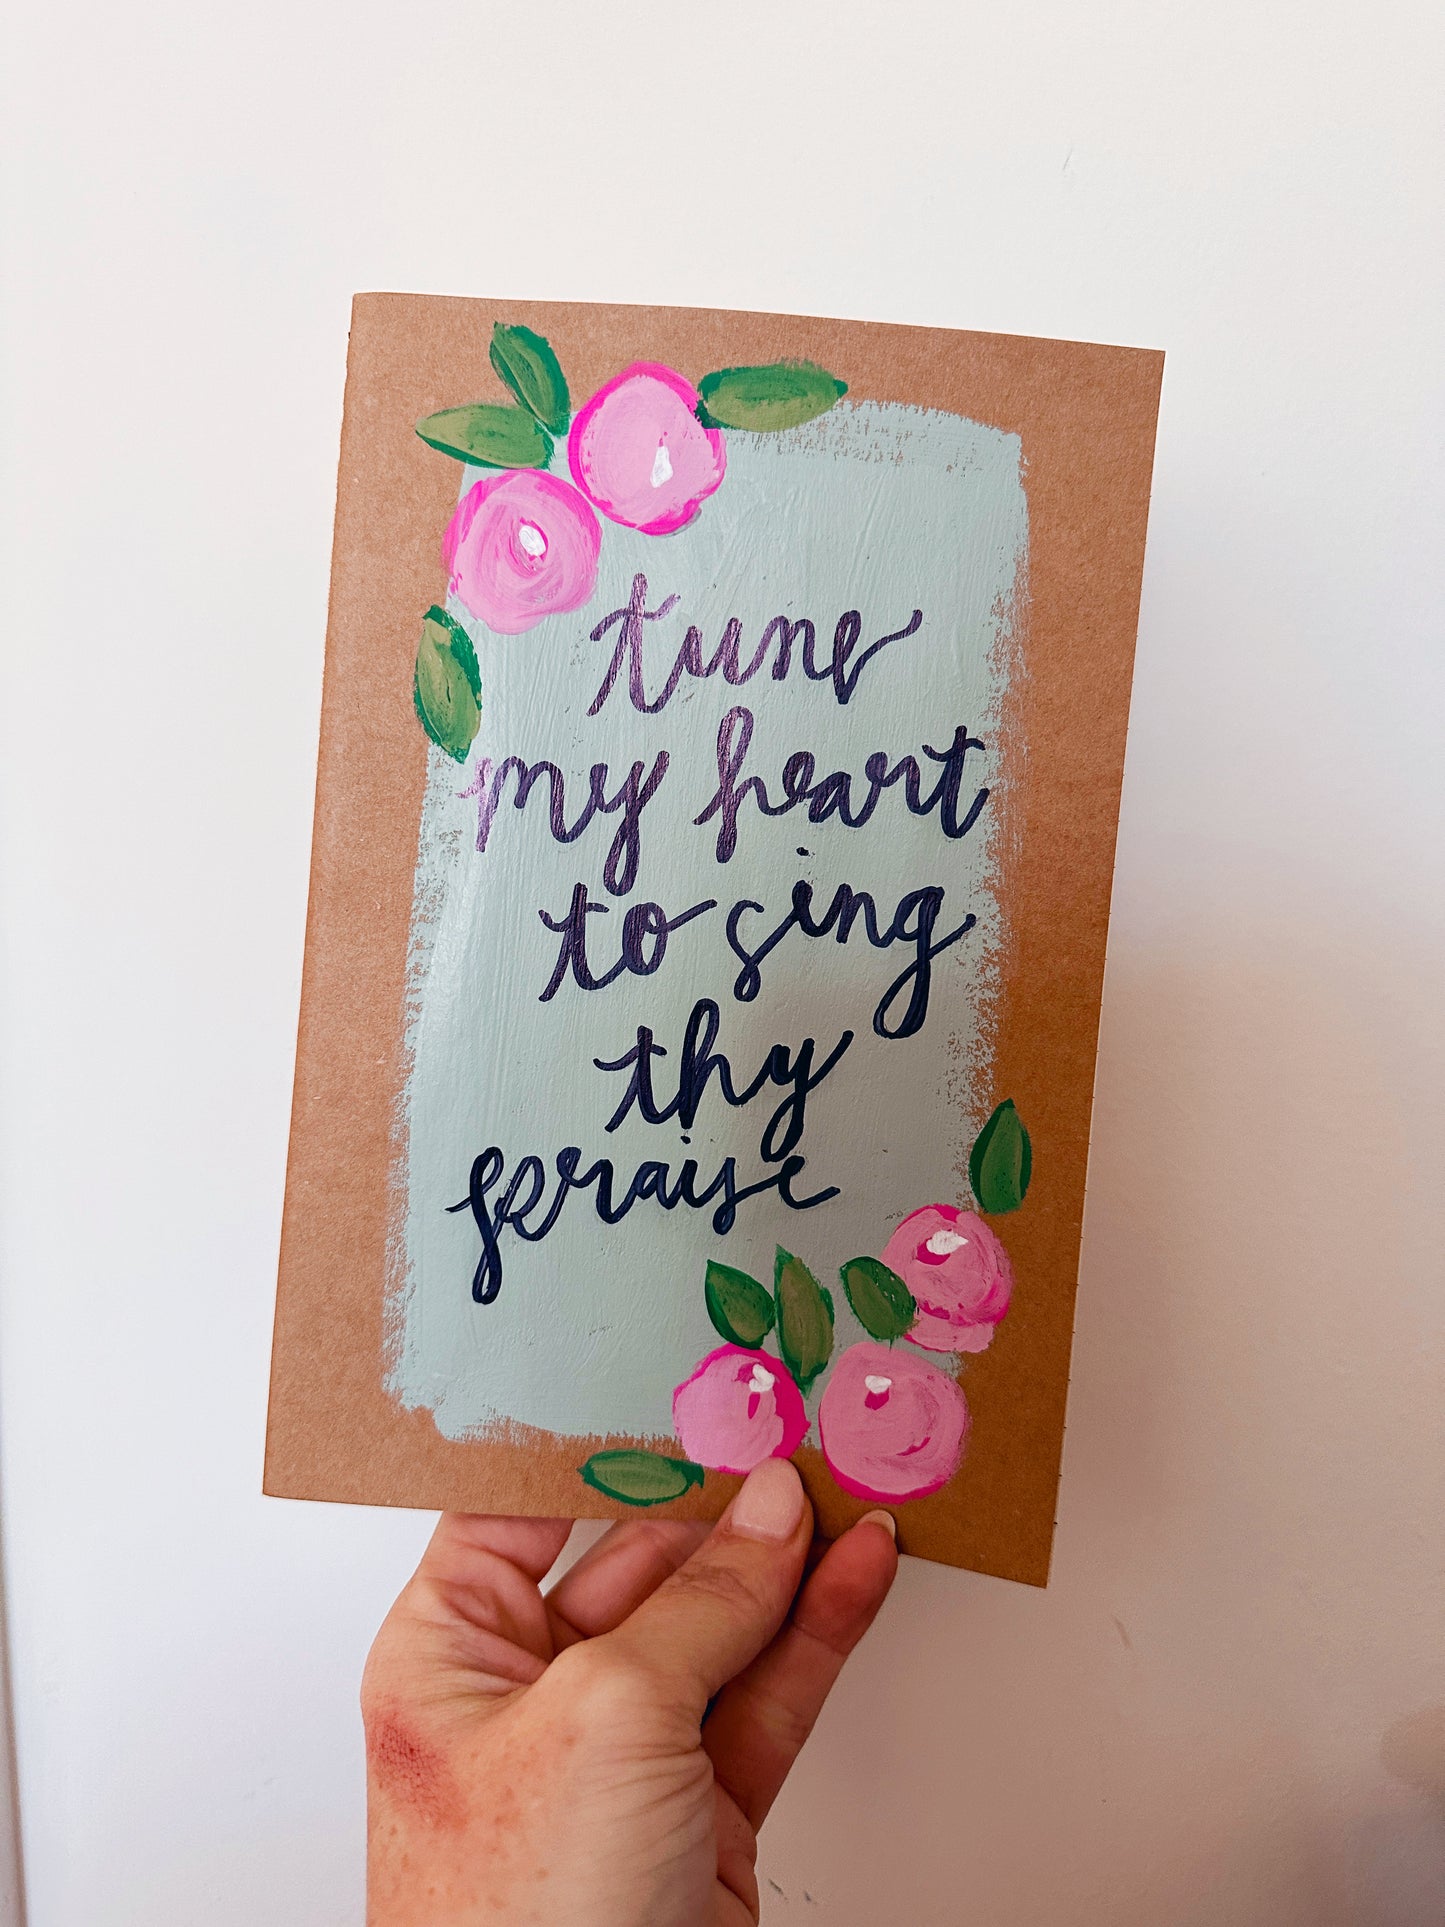 tune
my heart
to sing
thy
praise